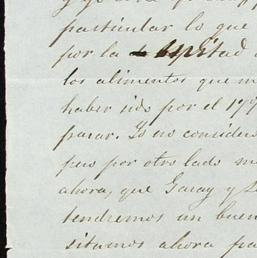 particular lo que
por la
los alimentos que m
haber sido por el 19
parar. Yo no consider
pero por otro lado m
ahora, que Garay y
tendremos un buen
situmos ahora pa